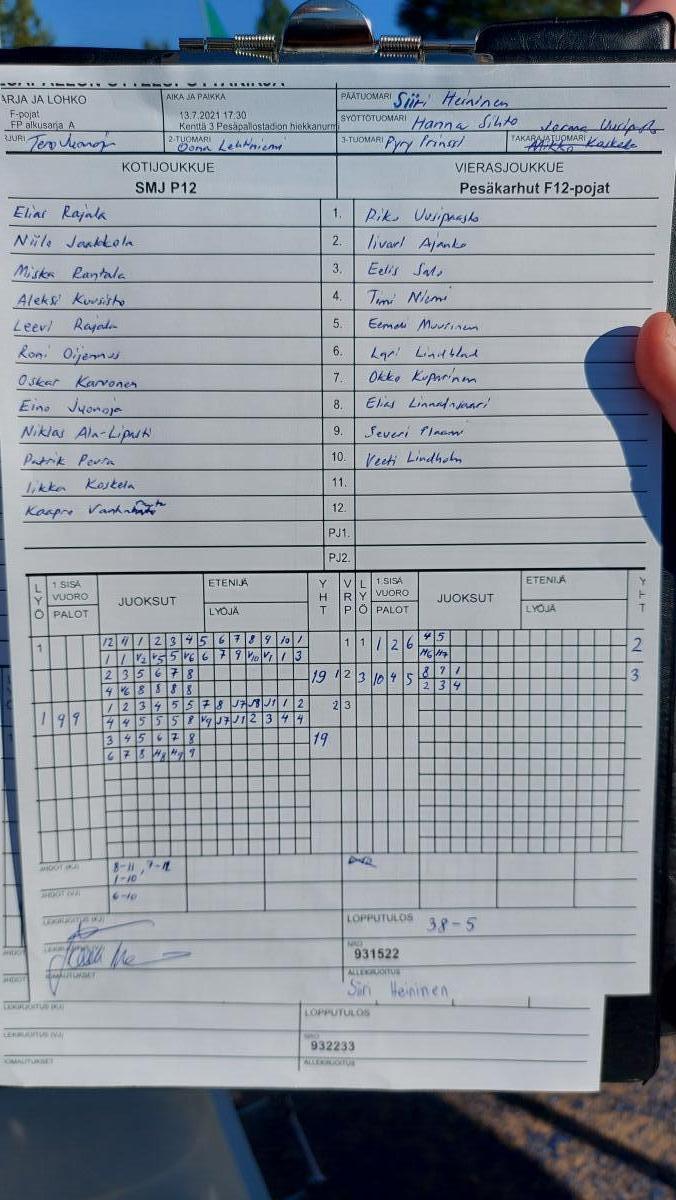 ARJA JA LOHKO
F-pojat
FP alkusarja A
AIKA JA PAIKKA
13.7.2021 17:30
Kenttä 3 Pesäpallostadion hiekkanurmi
PÄÄTUOMARI Siiri Heininen
SYÖTTÖTUOMARI Hanna Sihto
2-TUOMARI Oona Lehtiniemi
3-TUOMARI Pyry Prinssi
TAKARAJATUOMARI Mikko Koskela
KOTIJOUKKUE
SMJ P12
VIERASJOUKKUE
Pesäkarhut F12-pojat
Elias Rajala 1. Riku Uusipaasto
Niilo Jaakkola 2. Iivari Ajanko
Miska Rantala 3. Eelis Salo
Aleksi Kuusisto 4. Timi Niemi
Leevi Rajala 5. Eemeli Muurinen
Roni Oijennus 6. Lauri Lindblad
Oskar Karvonen 7. Okko Kuparinen
Eino Juonoja 8. Elias Linnainsaari
Niklas Ala-Lipasti 9. Severi
Patrik Peura 10. Veeti Lindholm
Iikka Koskela 11.
Kaapro 12.
PJ1.
PJ2.
LYÖ 1.SISÄ VUORO PALOT JUOKSUT ETENIJÄ LYÖJÄ YHT VRP LYÖ 1.SISÄ VUORO PALOT JUOKSUT ETENIJÄ LYÖJÄ YHT
1 12 4 1 2 3 4 5 6 7 8 9 10 1 1 1 1 2 6 4 5 2
1 1 V2 V5 5 V6 6 7 9 V10 V1 1 3 H6 H7
2 3 5 6 7 8 19 1 2 3 10 4 5 8 9 1 3
4 V6 8 8 8 8 2 3 4
1 9 9 1 2 3 4 5 5 7 8 J7 J8 J1 1 2 2 3
4 4 5 5 5 8 V9 J7 J1 2 3 4 4
3 4 5 6 7 8 19
6 7 8 H8 H9 9
8-11, 7-12
1-10
6-10
LOPPUTULOS 38-5
NRO
931522
ALLEKIRJOITUS
Siiri Heininen
LOPPUTULOS
NRO
932233
ALLEKIRJOITUS